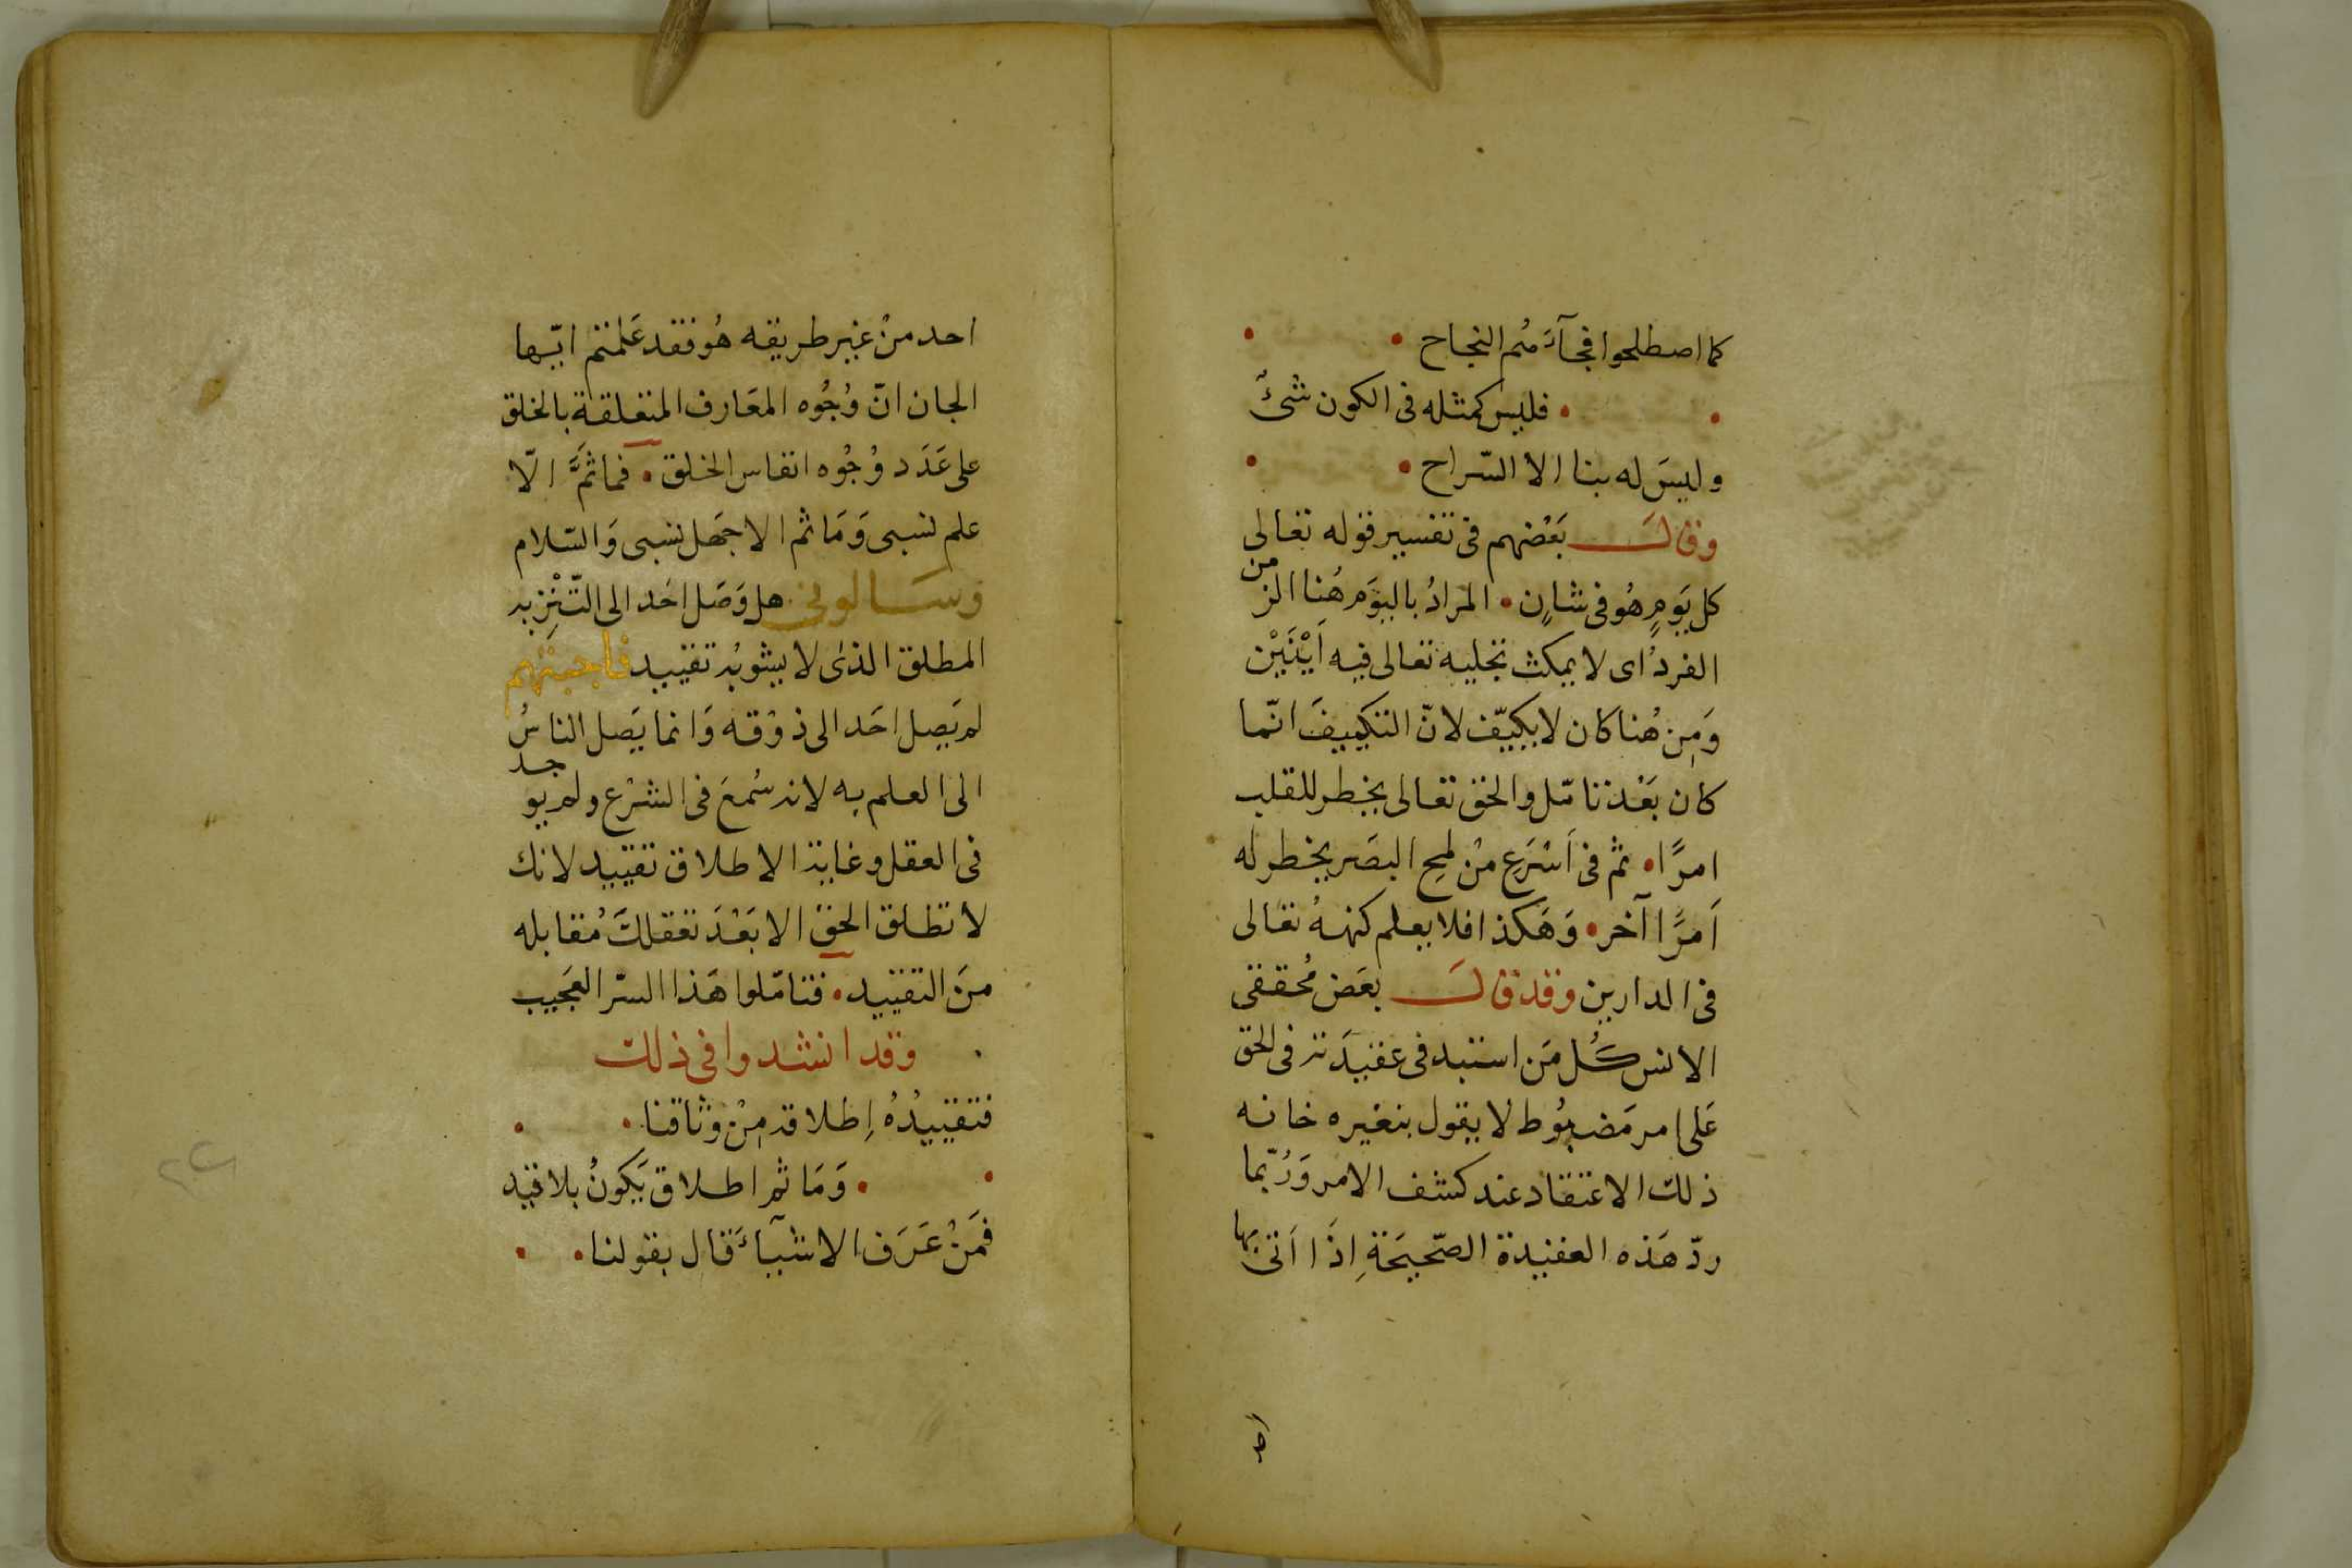 كما اصطلحوا فجآءَ مُم النجاح
فليس كمثله فى الكون شئٌ
وليسَ له بنا الا السّراح
وقالَ بَعْضهم فى تفسير قوله تعالى
كل يَومٍ هُو فى شانٍ المرادُ باليوَم هُنا الزمن
الفردُ اى لا يمكث تجليه تعالى فيه اَيْنَيْن
وَمِن هُنا كان لا يكيّف لانّ التكييفَ انّما
كان بَعْد تامّل والحق تعالى يخطر للقلب
امرًا ثم فى اَسْرَعِ منْ لمحِ البصَر يخطر له
اَمرًا آخر وَهَكذا فلا يعلم كنهه تعَالى
فى الدارين وقد قالَ بعَض مُحققى
الانس كُل مَن استبد فى عقيدَته فى الحق
عَلى امر مَضبُوط لا يقول بتغيره خانه
ذلك الاعتقاد عند كشف الامر وَرُبّما
ردّ هَذه العقيدة الصّحيحَةِ اذَا اَتى بها
احد
احد منْ غير طريقه هُو فقد عَلمتم ايّها
الجان انّ وُجُوه المعَارف المتعلقة بالخلق
على عَدَد وُجُوه انفاس الخلق فما ثَمَّ الّا
علم نسبى وَمَا ثم الا جَهل نسبى وَالسّلام
وَسَالونى هل وَصَل احَد الى التّنْزِيه
المطلق الذى لا يشوبُه تقييد فاجبتهم
لم يَصِل احَد الى ذوْقه وَانما يَصل الناسُ
الى العلم به لانه سُمعَ فى الشرْع ولم يوجد
فى العقل وغاية الاطلاق تقييد لانك
لا تطلق الحق الا بَعْدَ تعَقلكَ مُقابله
منَ التقييد فتامّلوا هَذا السّر العَجيب
وقد انشدوا فى ذلك
فتقييدُهُ اِطلاقه مِنْ وثاقنا
وَمَا ثم اطلاق يَكونُ بلا قيد
فمَنْ عَرَف الاشيآءَ قال بقولنا